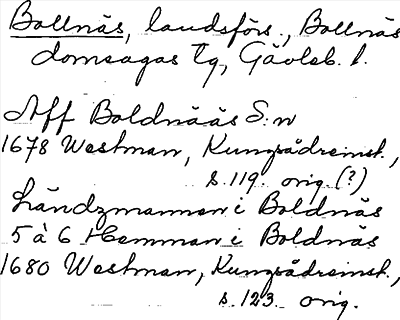 Bollnäs, landsförs., Bollnäs
domsagas tg, Gävleb. l.
Aff Boldnääs S:n
1678 Westman, Kungsådreinst.,
s. 119. orig. (?)
Ländzmannen i Boldnäs
5 à 6 Hemman i Boldnäs
1680 Westman, Kungsådreinst.,
s. 123. orig.